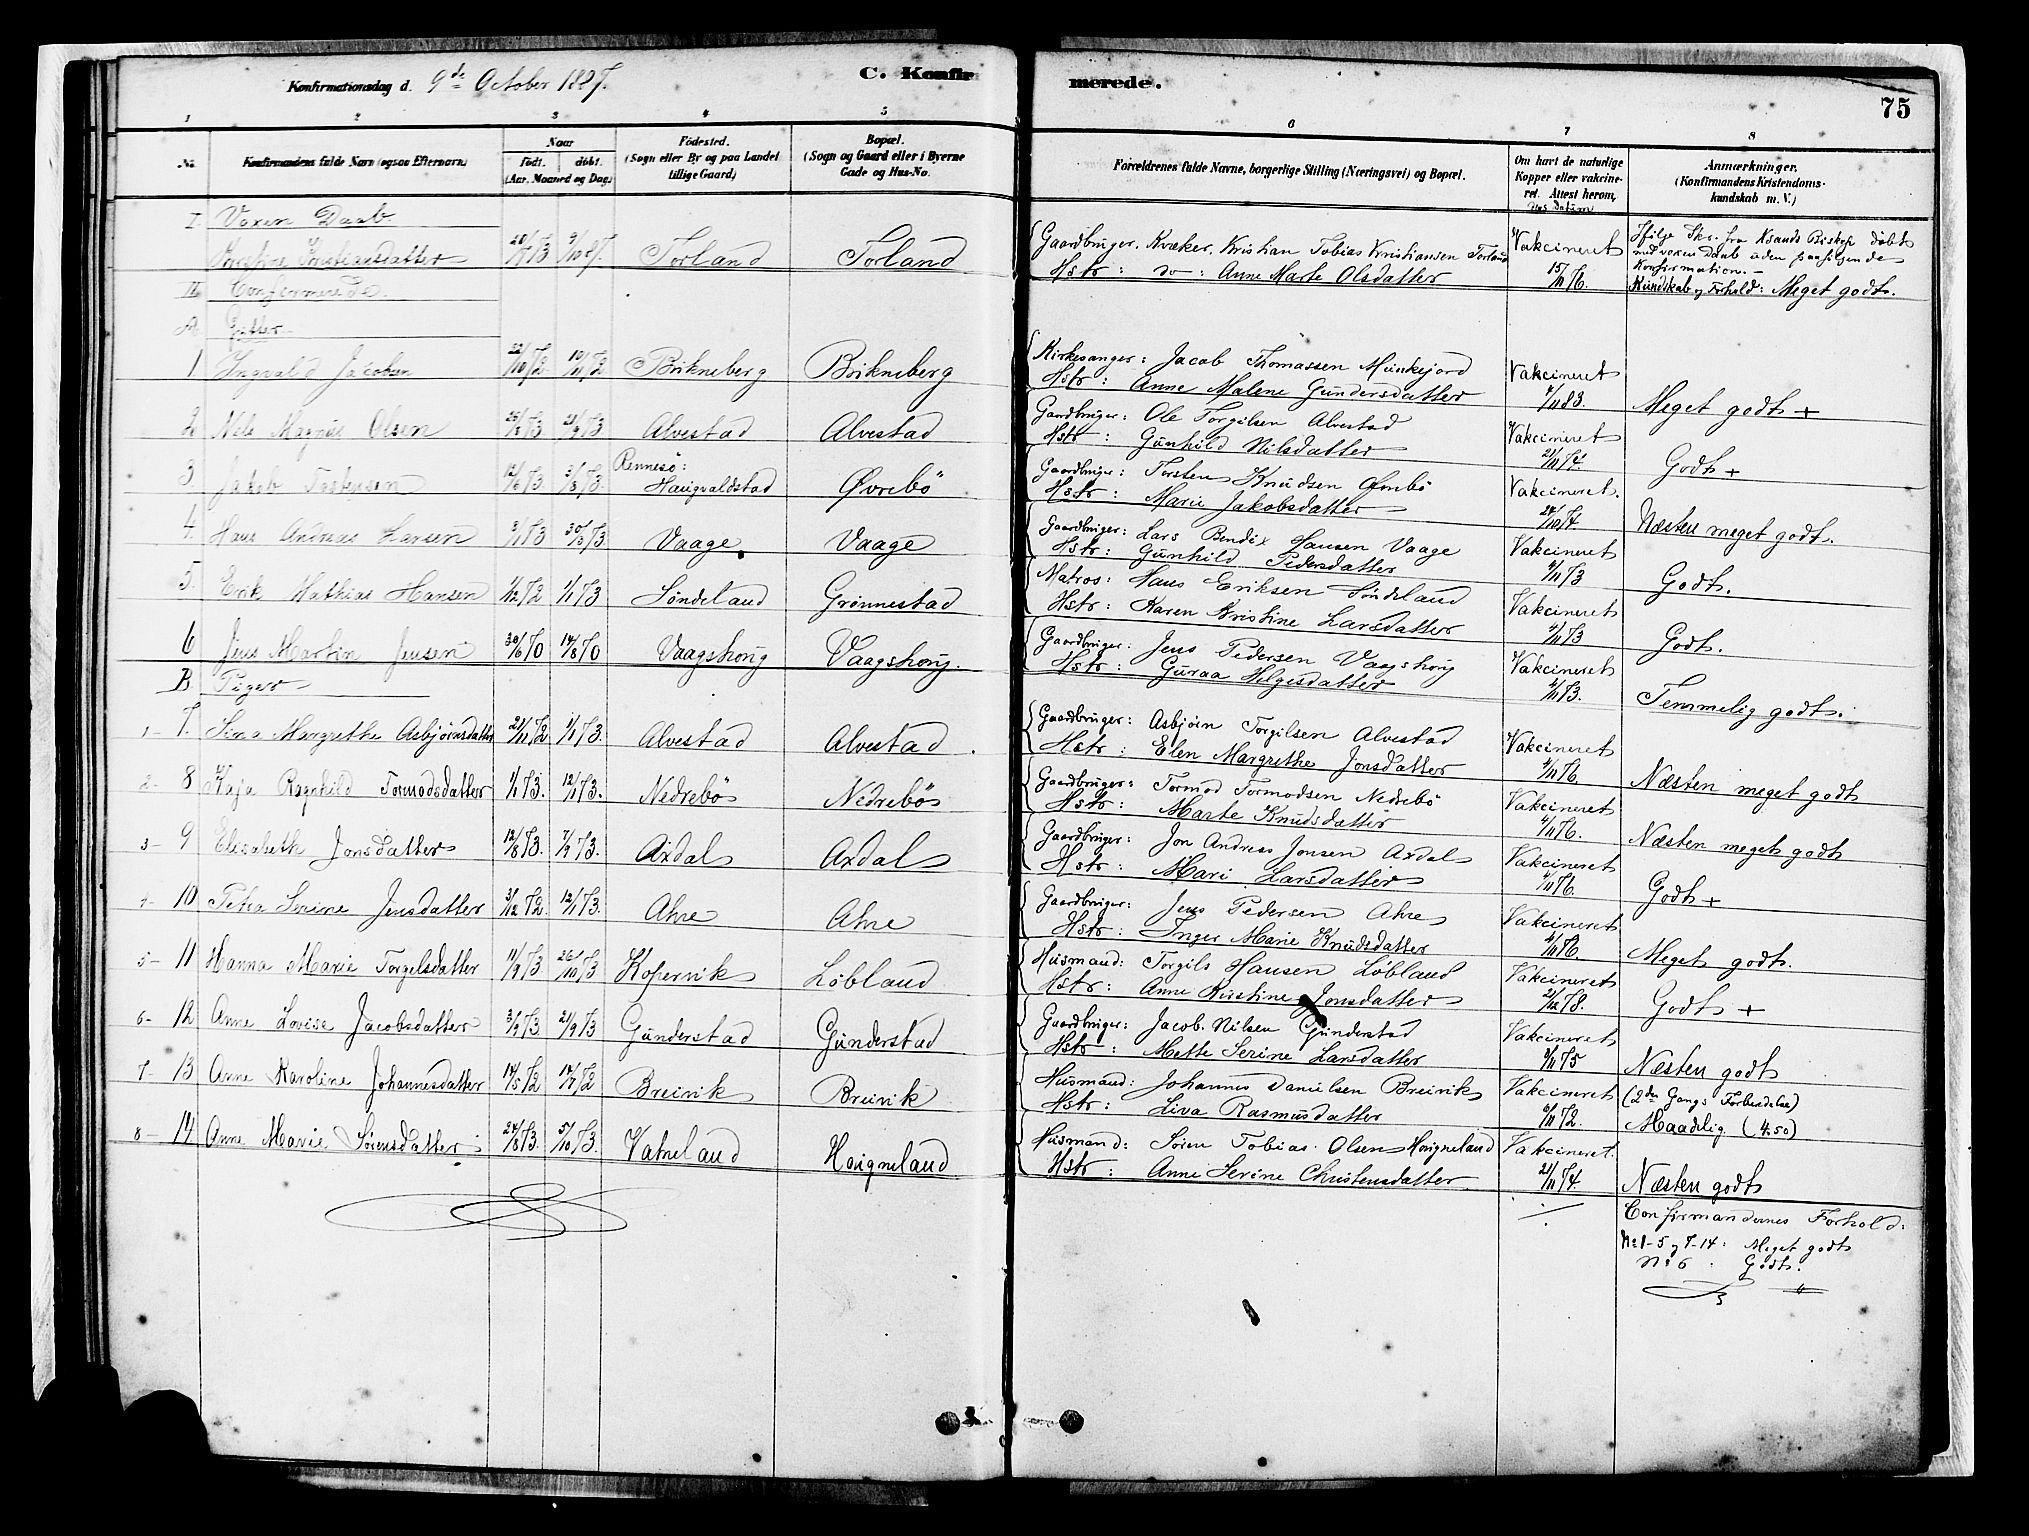 Konfirmationsdag d. 9de October 1887.
C. Konfirmerede.
75
1 2 3 4 5 6 7 8
No.
Konfirmandens fulde Navn (ogsaa Efternavn)
Naar
født. døbt.
(Aar, Maaned og Dag)
Fødested.
(Sogn eller By og paa Landet
tillige Gaard)
Bopæl.
(Sogn og Gaard eller i Byerne
Gade og Hus-No.
Forældrenes fulde Navne, borgerlige Stilling (Næringsvei) og Bopæl.
Om havt de naturlige
Kopper eller vakcine-
ret. Attest herom,
dens Datum
Anmærkninger.
(Konfirmandens Kristendoms-
kundskab m. V.)
I. Voxen Daab.
Kristine Kristiansdatter 9/10 87 Torland Torland
Gaardbruger. Kvæker. Kristian Tobias Kristiansen Torland
Hstr: do: Anne Marte Olsdatter
Vakcineret 15/11 76.
Ifølge Skr. fra Ksands Biskop døbt
med voxen Daab uden paafølgende
Konfirmation.-
Kundskab og Forhold: Meget godt.
II. Confirmerede.
A. Gutter
1 Ingvald Jacobsen 22/10 72 10/11 72 Bokneberg Bokneberg
Kirkesanger: Jacob Thomassen Munkejord
Hstr: Anne Malene Gundersdatter
Vakcineret 4/11 83. Meget godt +
2 Nels Magnus Olsen Alvestad Alvestad
Gaardbruger: Ole Torgilsen Alvestad
Hstr: Gunhild Nilsdatter
Vakcineret 21/11 74. Godt +
3. Jakob Tostensen 12/6 73 3/8 73. Rennesø:
Haugvaldstad Øvrebö
Gaardbruger: Torsten Knudsen Øvrebö
Hstr: Marie Jakobsdatter
Vakcineret. 24/10 74 Næsten meget godt.
4. Hans Andreas Larsen 30/3 73 Vaage Vaage
Gaardbruger: Lars Bendix Hansen Vaage
Hstr: Gunhild Pedersdatter
Vakcineret 4/11 73 Godt.
5. Erik Mathias Hansen 1/12 72 1/1 73 Søndeland Grønnestad
Matros: Hans Eriksen Søndeland
Hstr: Karen Kristine Larsdatter
Vakcineret 4/11 73 Godt.
6 Jens Martin Jensen 30/6 70 14/8 70 Vaagshoug Vaagshoug.
Gaardbruger: Jens Pedersen Vaagshoug
Hstr: Guraa Helgesdatter
Vakcineret 4/11 73. Temmelig godt.
B. Piger
1- 7. Sina Margrethe Asbjørnsdatter 21/11 72 1/1 73. Alvestad Alvestad.
Gaardbruger: Asbjørn Torgilsen Alvestad
Hstr: Elen Margrethe Jonsdatter
Vakcineret 4/11 76. Næsten meget godt
2- 8 Kaja Ragnhild Tormodsdatter 1/1 73. 12/1 73. Nedrebö Nedrebö
Gaardbruger: Tormod Tormodsen Nedrebö
Hstr: Marte Knudsdatter
Vakcineret 4/11 76. Næsten meget godt
3- 9 Elisabeth Jonsdatter 12/8 73. 7/9 73. Axdal Axdal
Gaardbruger: Jon Andreas Jonsen Axdal
Hstr: Mari Larsdatter
Vakcineret 4/11 76. Godt +
4- 10 Petra Serine Jensdatter 3/12 72. 12/1 73. Ahre Ahre
Gaardbruger: Jens Pedersen Ahre
Hstr: Inger Marie Knudsdatter
Vakcineret 4/11 76. Meget godt.
5- 11 Hanna Marie Torgelsdatter 11/9 73 26/10 73 Kopervik Løbland
Husmand: Torgils Hansen Løbland
Hstr: Anne Kirstine Jonsdatter
Vakcineret 21/12 78. Godt +
6- 12 Anne Lovise Jacobsdatter 3/9 73 21/9 73 Gunderstad Gunderstad
Gaardbruger: Jacob Nilsen Gunderstad
Hstr: Mette Serine Larsdatter
Vakcineret 75 Næsten godt
7- 13 Anne Karoline Johannesdatter 14/5 72 14/7 72 Breivik Breivik
Husmand: Johannes Danielsen Breivik
Hstr: Liva Rasmusdatter
Vakcineret 6/11 72. (2den Gangs Forberedelse)
Maadelig (4.50)
8- 14 Anne Marie Sørensdatter 24/8 73. 5/10 73. Vatneland Hoigneland
Husmand: Søren Tobias Olsen Hoigneland
Hstr: Anne Serine Christensdatter
Vakcineret. 21/11 74. Næsten godt
Confirmandernes Forhold:
No 1-5 og 7-14: Meget godt
No 6: Godt.